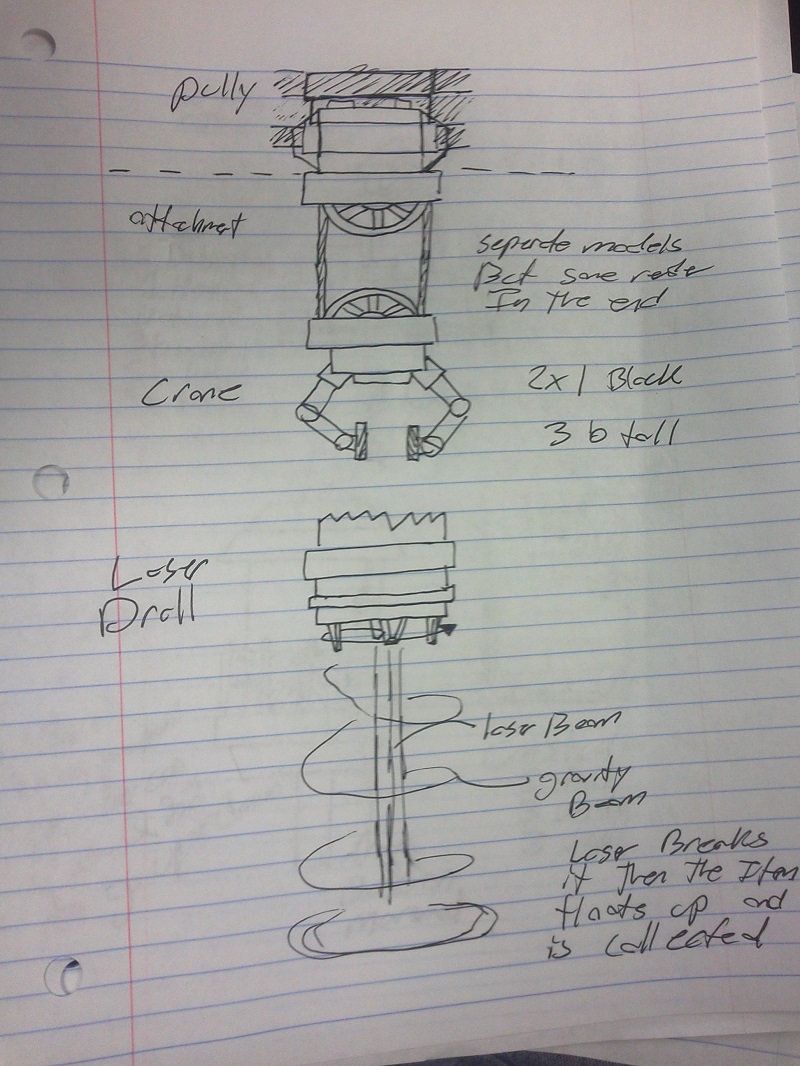 pully
attachmet
seperate models
But same
In the end
Crane
2x1 Block
3 b tall
Laser
Drall
laser Beam
gravity
Beam
Laser Breaks
it then the Item
floats up and
is collected